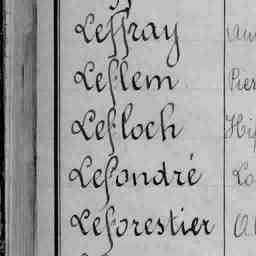 Leffray
Leflem
Lefloch
Lefondré
Leforestier